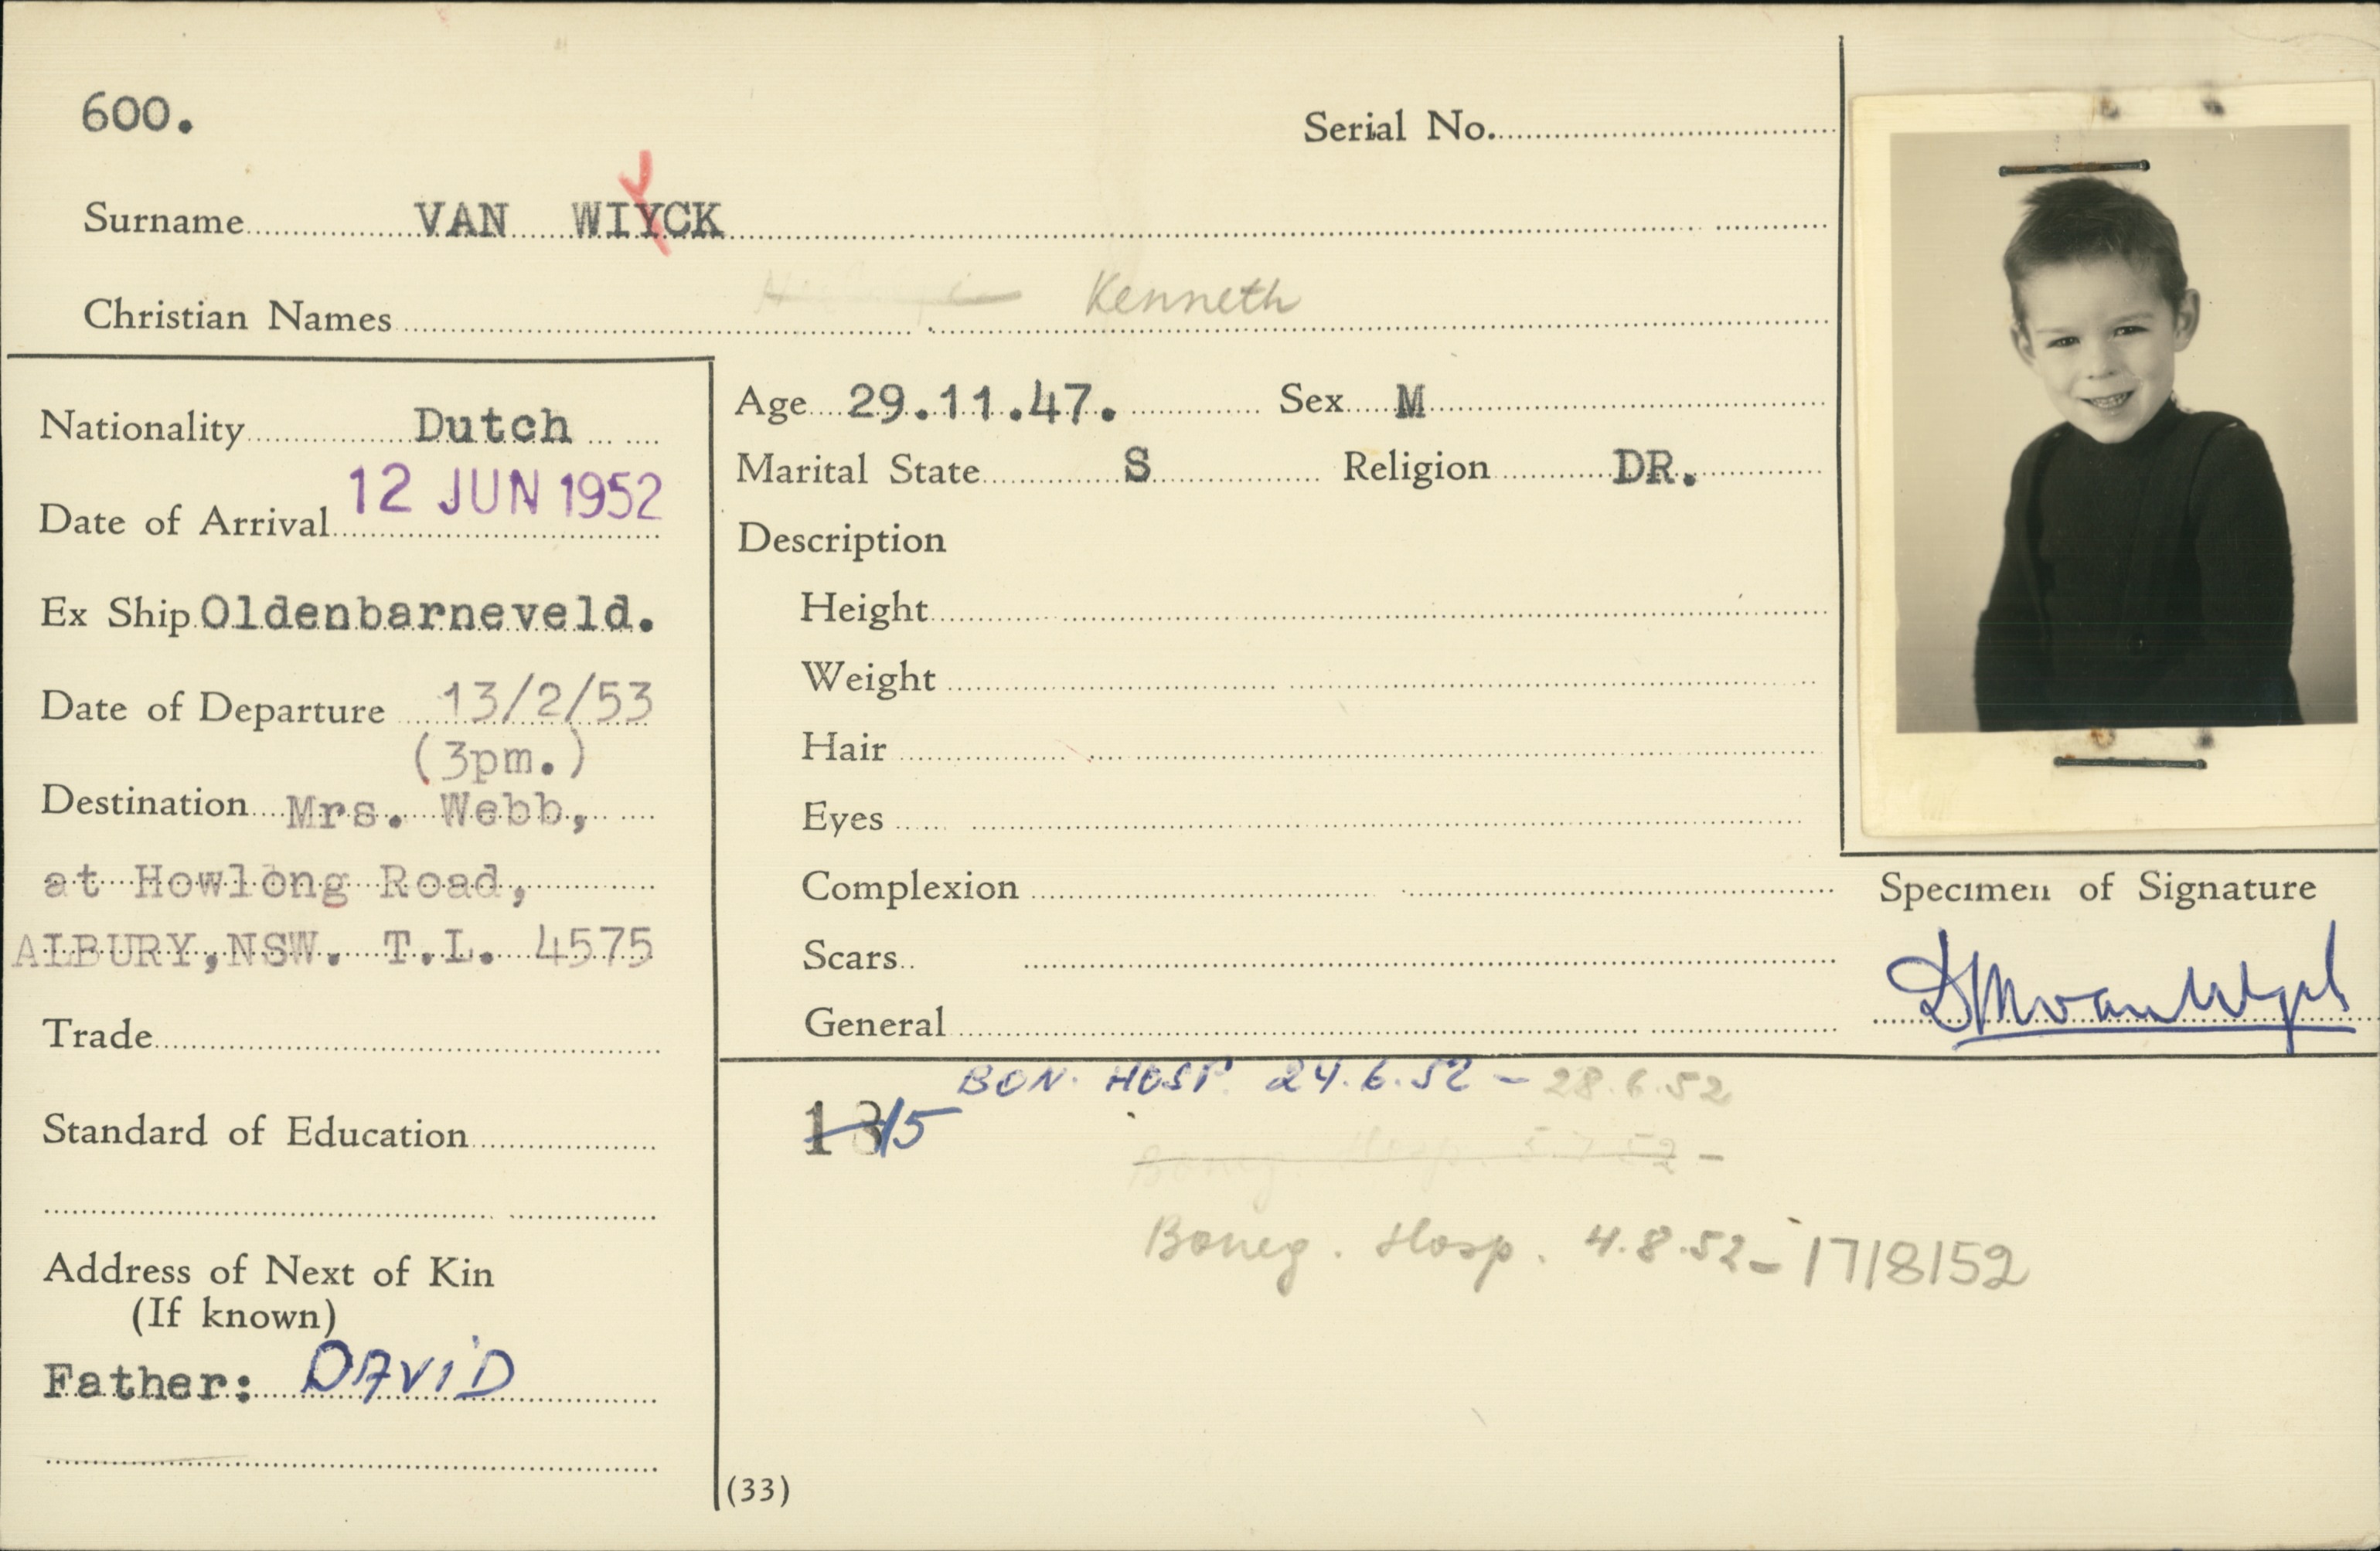 600.
Serial No.
Surname VAN WIYCK
Christian Names Kenneth
Nationality Dutch
Date of Arrival 12 JUN 1952
Ex Ship Oldenbarneveld.
Date of Departure 13/2/53
(3pm.)
Destination Mrs. Webb,
at Howlong Road,
ALBURY,NSW. T.L. 4575
Trade
Standard of Education
Address of Next of Kin
(If known)
Father: DAViD
Age 29.11.47. Sex M
Marital State S Religion DR.
Description
Height
Weight
Hair
Eyes
Complexion
Scars
General
Specimen of Signature
BON. HOSP. 24.6.52 - 28.6.52
18/5
Boneg. Hosp. 5.7.52 -
Boneg. Hosp. 4.8.52 - 17/8/52
(33)